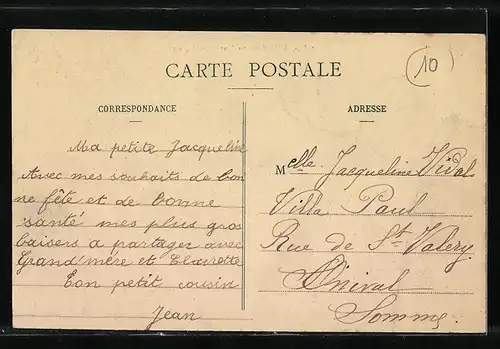 (10)
CARTE POSTALE
CORRESPONDANCE
ADRESSE
Ma petite Jacqueline
Avec mes souhaits de bon
ne fête et de bonne
santé mes plus gros
baisers a partager avec
Grand'mère et Clairette
Ton petit cousin
Jean
Melle Jacqueline Vidal
Villa Paul
Rue de St Valery
Onival
Somme